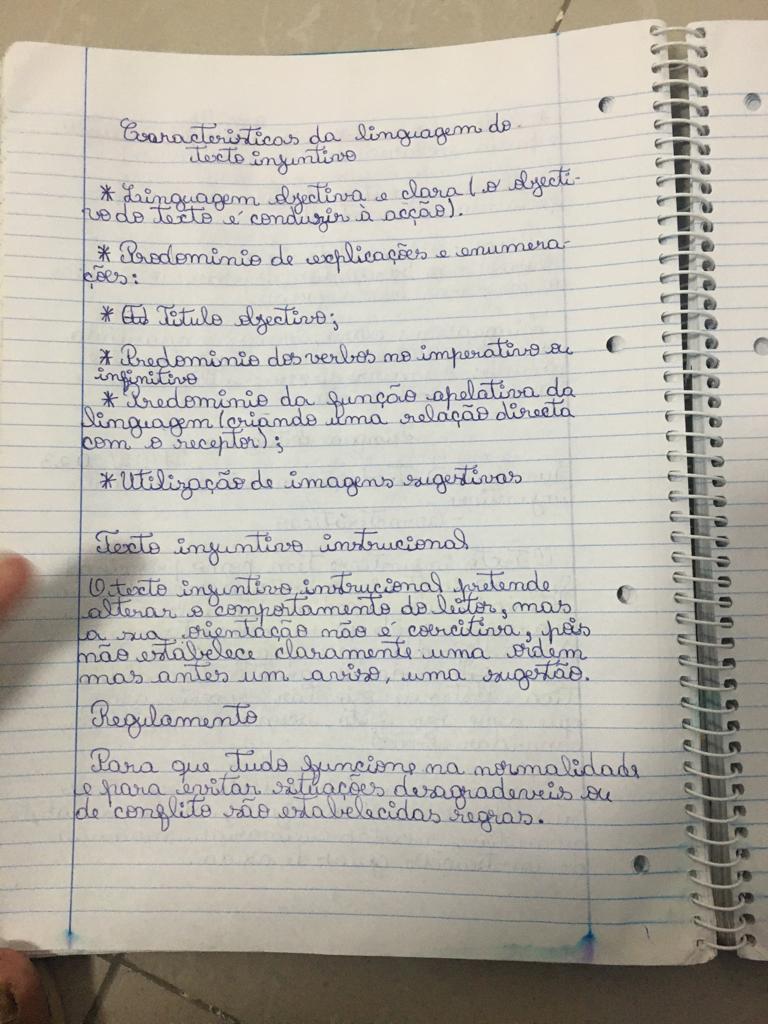 Características da linguagem do
texto injuntivo
* Linguagem objectiva e clara (o objecti-
vo do texto é conduzir à acção).
* Predominio de explicações e enumera-
ções:
* Titulo objectivo;
* Predominio dos verbos no imperativo ou
infinitivo
* Predominio da função apelativa da
linguagem (criando uma relação directa
com o receptor);
* Utilização de imagens sugestivas
Texto injuntivo instrucional
O texto injuntivo instrucional pretende
alterar o comportamento do leitor, mas
a sua orientação não é coercitiva, pois
não estabelece claramente uma ordem
mas antes um aviso, uma sugestão.
Regulamento
Para que tudo funcione na normalidade
e para evitar situações desagradeveis ou
de conflito são estabelecidas regras.